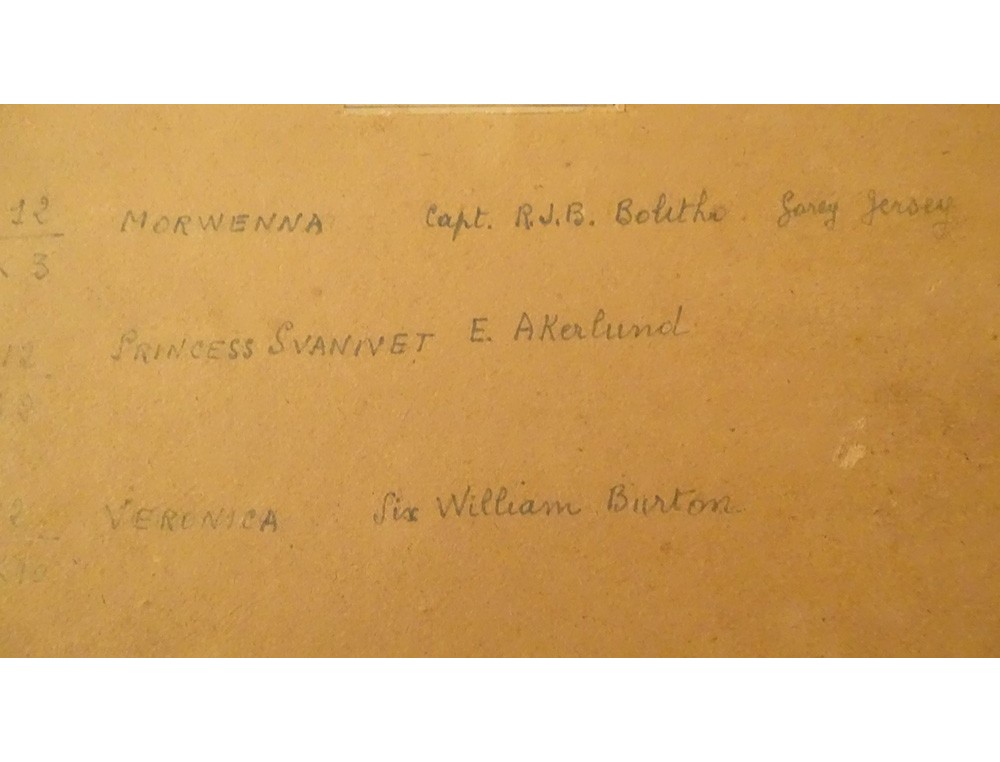 12 MORWENNA Capt. R.J.B. Bolitho. Gorey Jersey
K 3
12 PRINCESS SVANIVET E. AKerlund
VERONICA Sir William Burton
K10